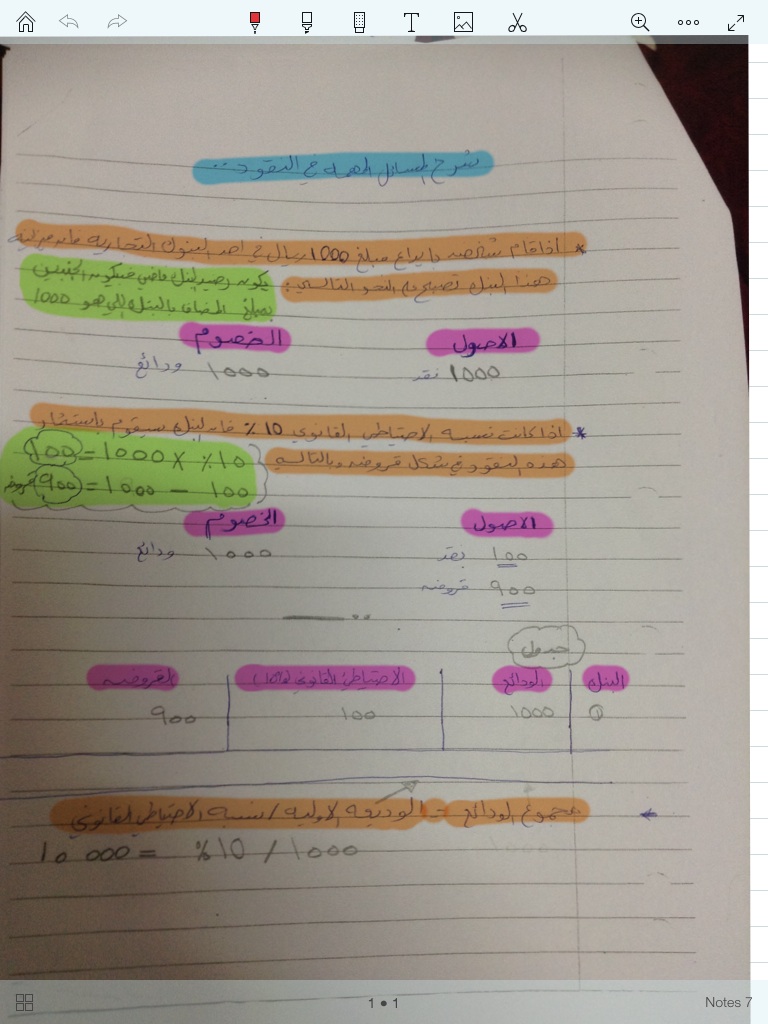 T
شرح المسائل المهمه في النقود..
* اذا قام شخص بايداع مبلغ 1000 ريال في احد البنوك التجاريه فان ميزانيه
هذا البنك تصبح على النحو التالي:
يكون رصيد البنك فاضي فيكون الجنبين
بمبلغ المضاف بالبنك اللي هو 1000
الاصول الخصوم
1000 نقد ١٠٠٠ ودائع
* اذا كانت نسبه الاحتياطي القانوني 10٪ فان البنك سيقوم باستثمار
هذه النقود في شكل قروض وبالتالي
10٪ × 1000 = 100
100 – 1000 = 900 قروض
الاصول الخصوم
١٠٠ نقد ١٠٠٠ ودائع
٩٠٠ قروض
جدول
البنك الودائع الاحتياطي القانوني (10٪) القروض
① 1000 100 900
← مجموع الودائع = الوديعه الاوليه / نسبه الاحتياطي القانوني
1000 / 10٪ = 10 000
1 • 1
Notes 7